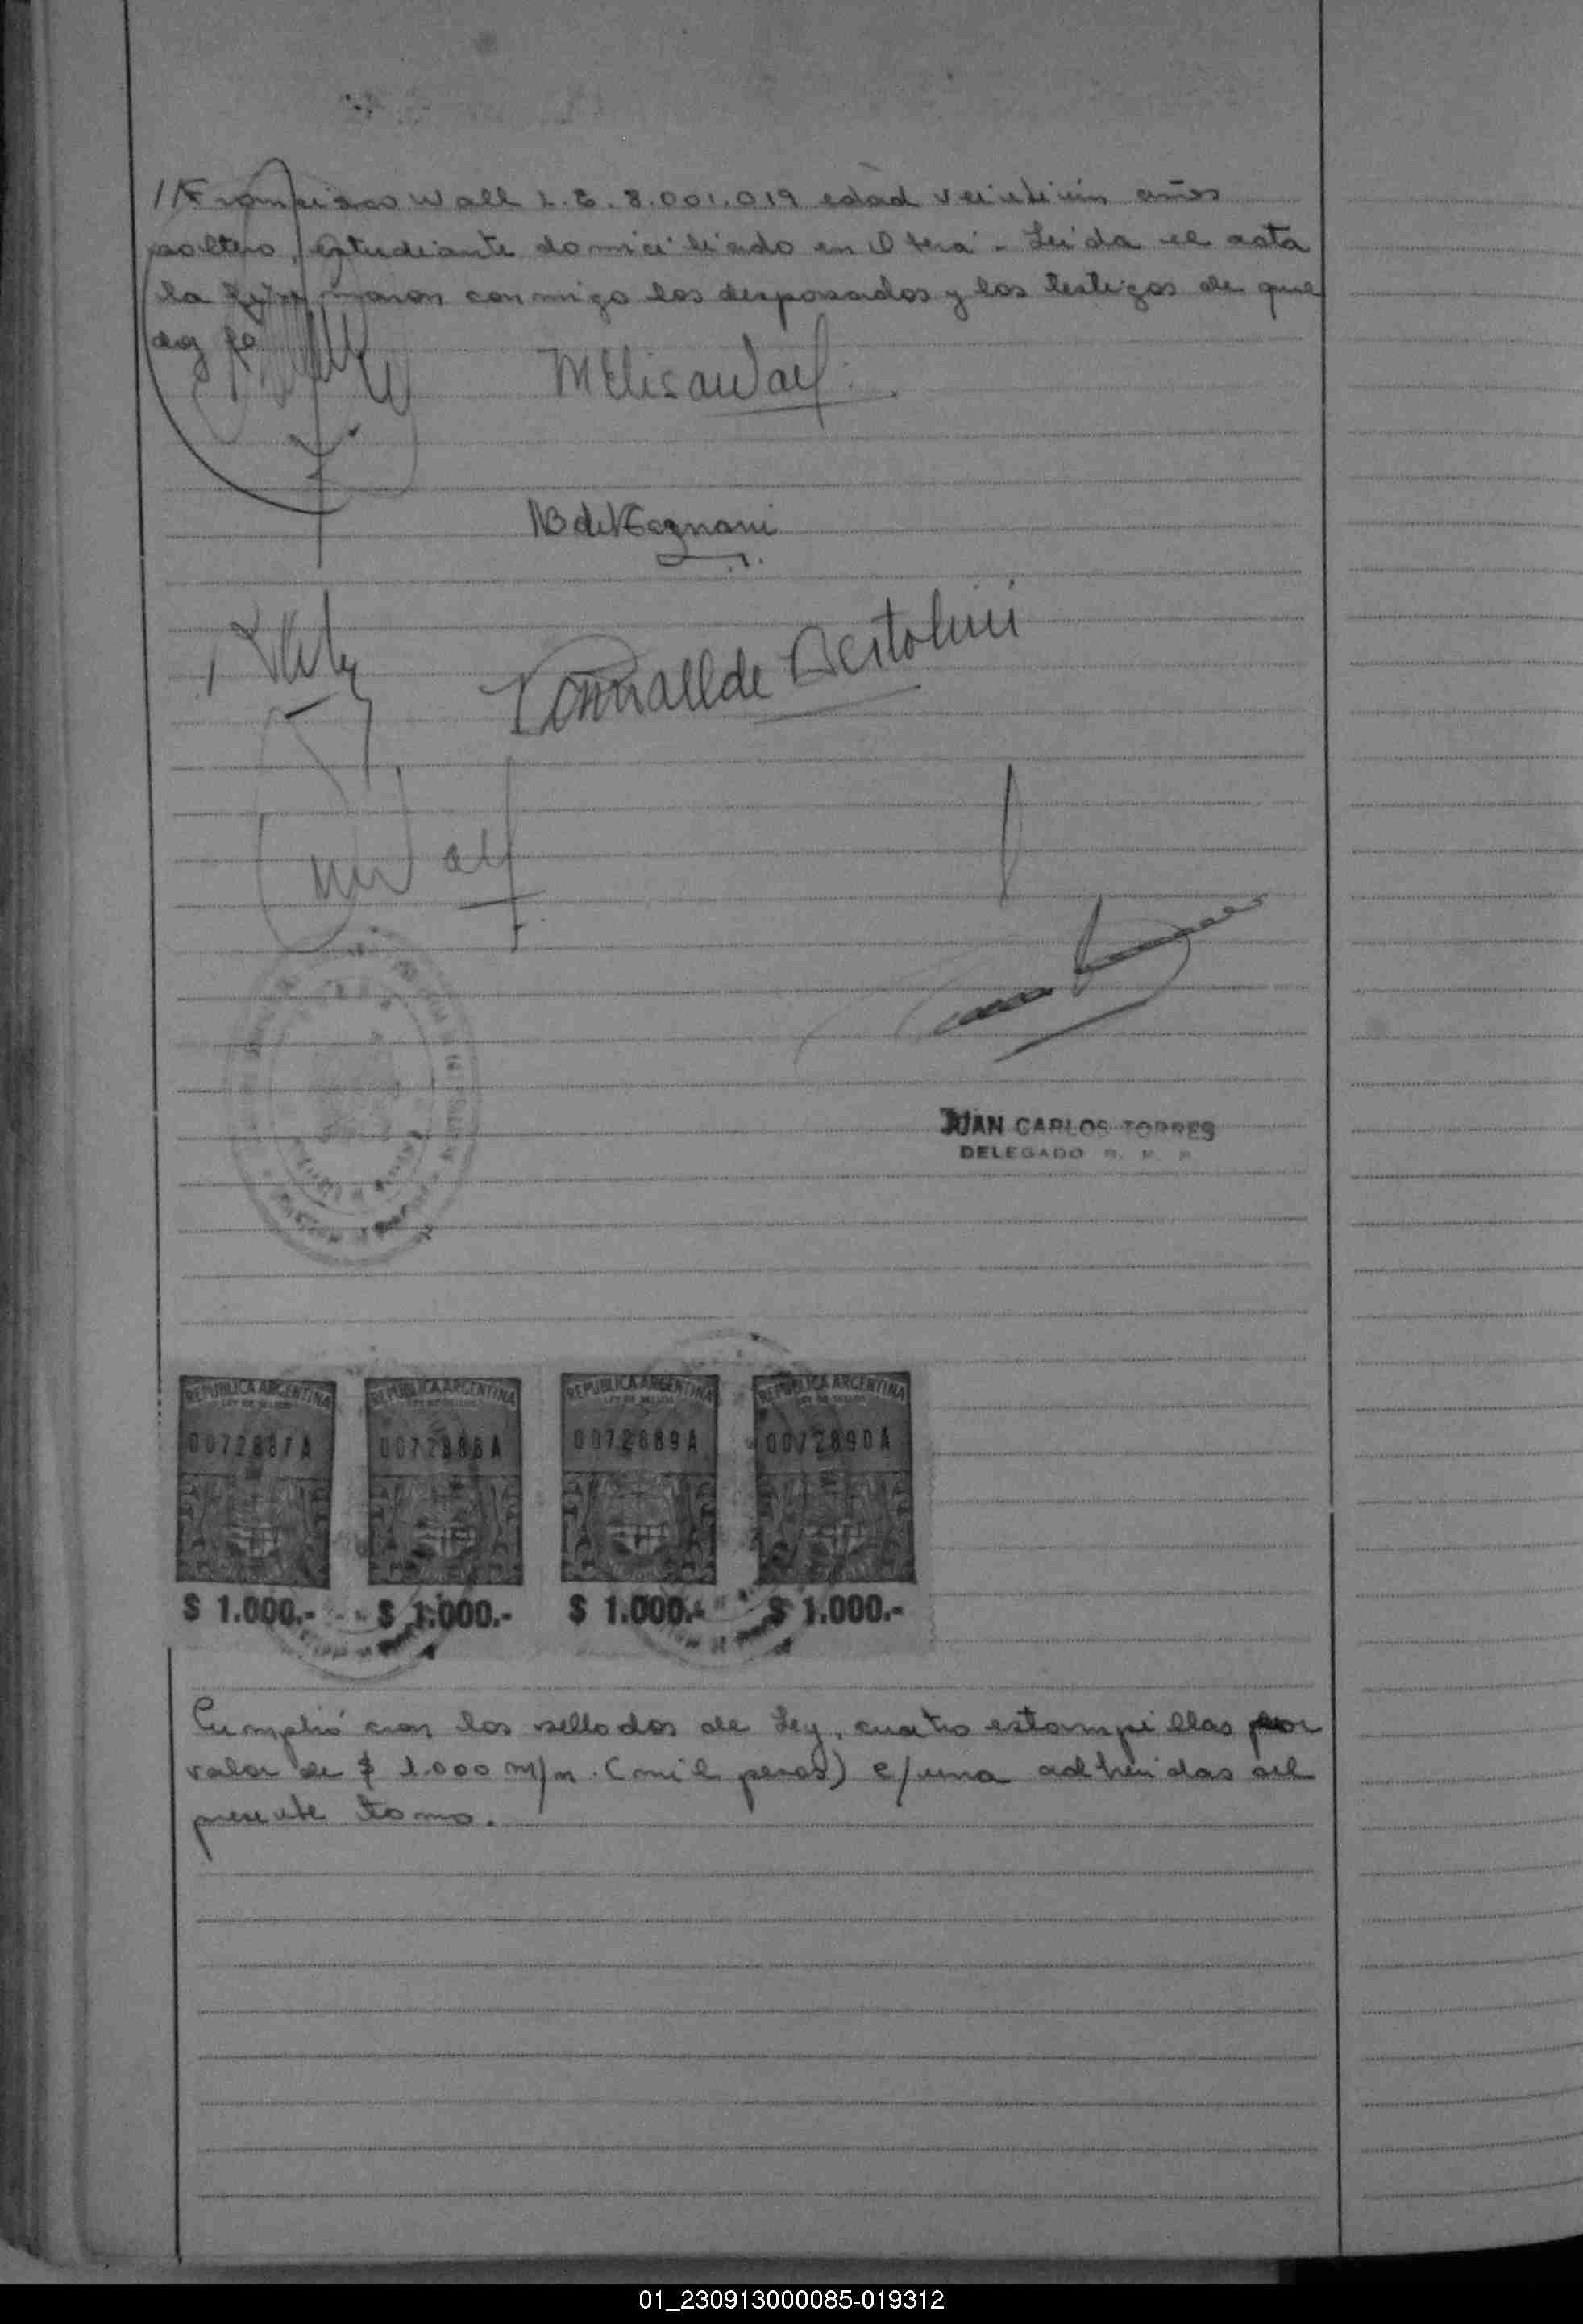 // Francisco Wall L.E. 8.001.019 edad veintiún años
soltero, estudiante domiciliado en Oberá - Leída el acta
la firmaron conmigo los desposados y los testigos de que
doy fe
MElisaWall
NB de Vegnani
de Bertolini
Wall
JUAN CARLOS TORRES
DELEGADO R. P. P.
REPUBLICA ARGENTINA REPUBLICA ARGENTINA REPUBLICA ARGENTINA REPUBLICA ARGENTINA
LEY DE SELLOS LEY DE SELLOS LEY DE SELLOS LEY DE SELLOS
0072887A 0072888A 0072889A 0072890A
$ 1.000.- $ 1.000.- $ 1.000.- $ 1.000.-
Cumplió con los sellados de Ley, cuatro estampillas por
valor de $ 1.000 m/n. (mil pesos) c/una adheridas al
presente tomo.
01_230913000085-019312